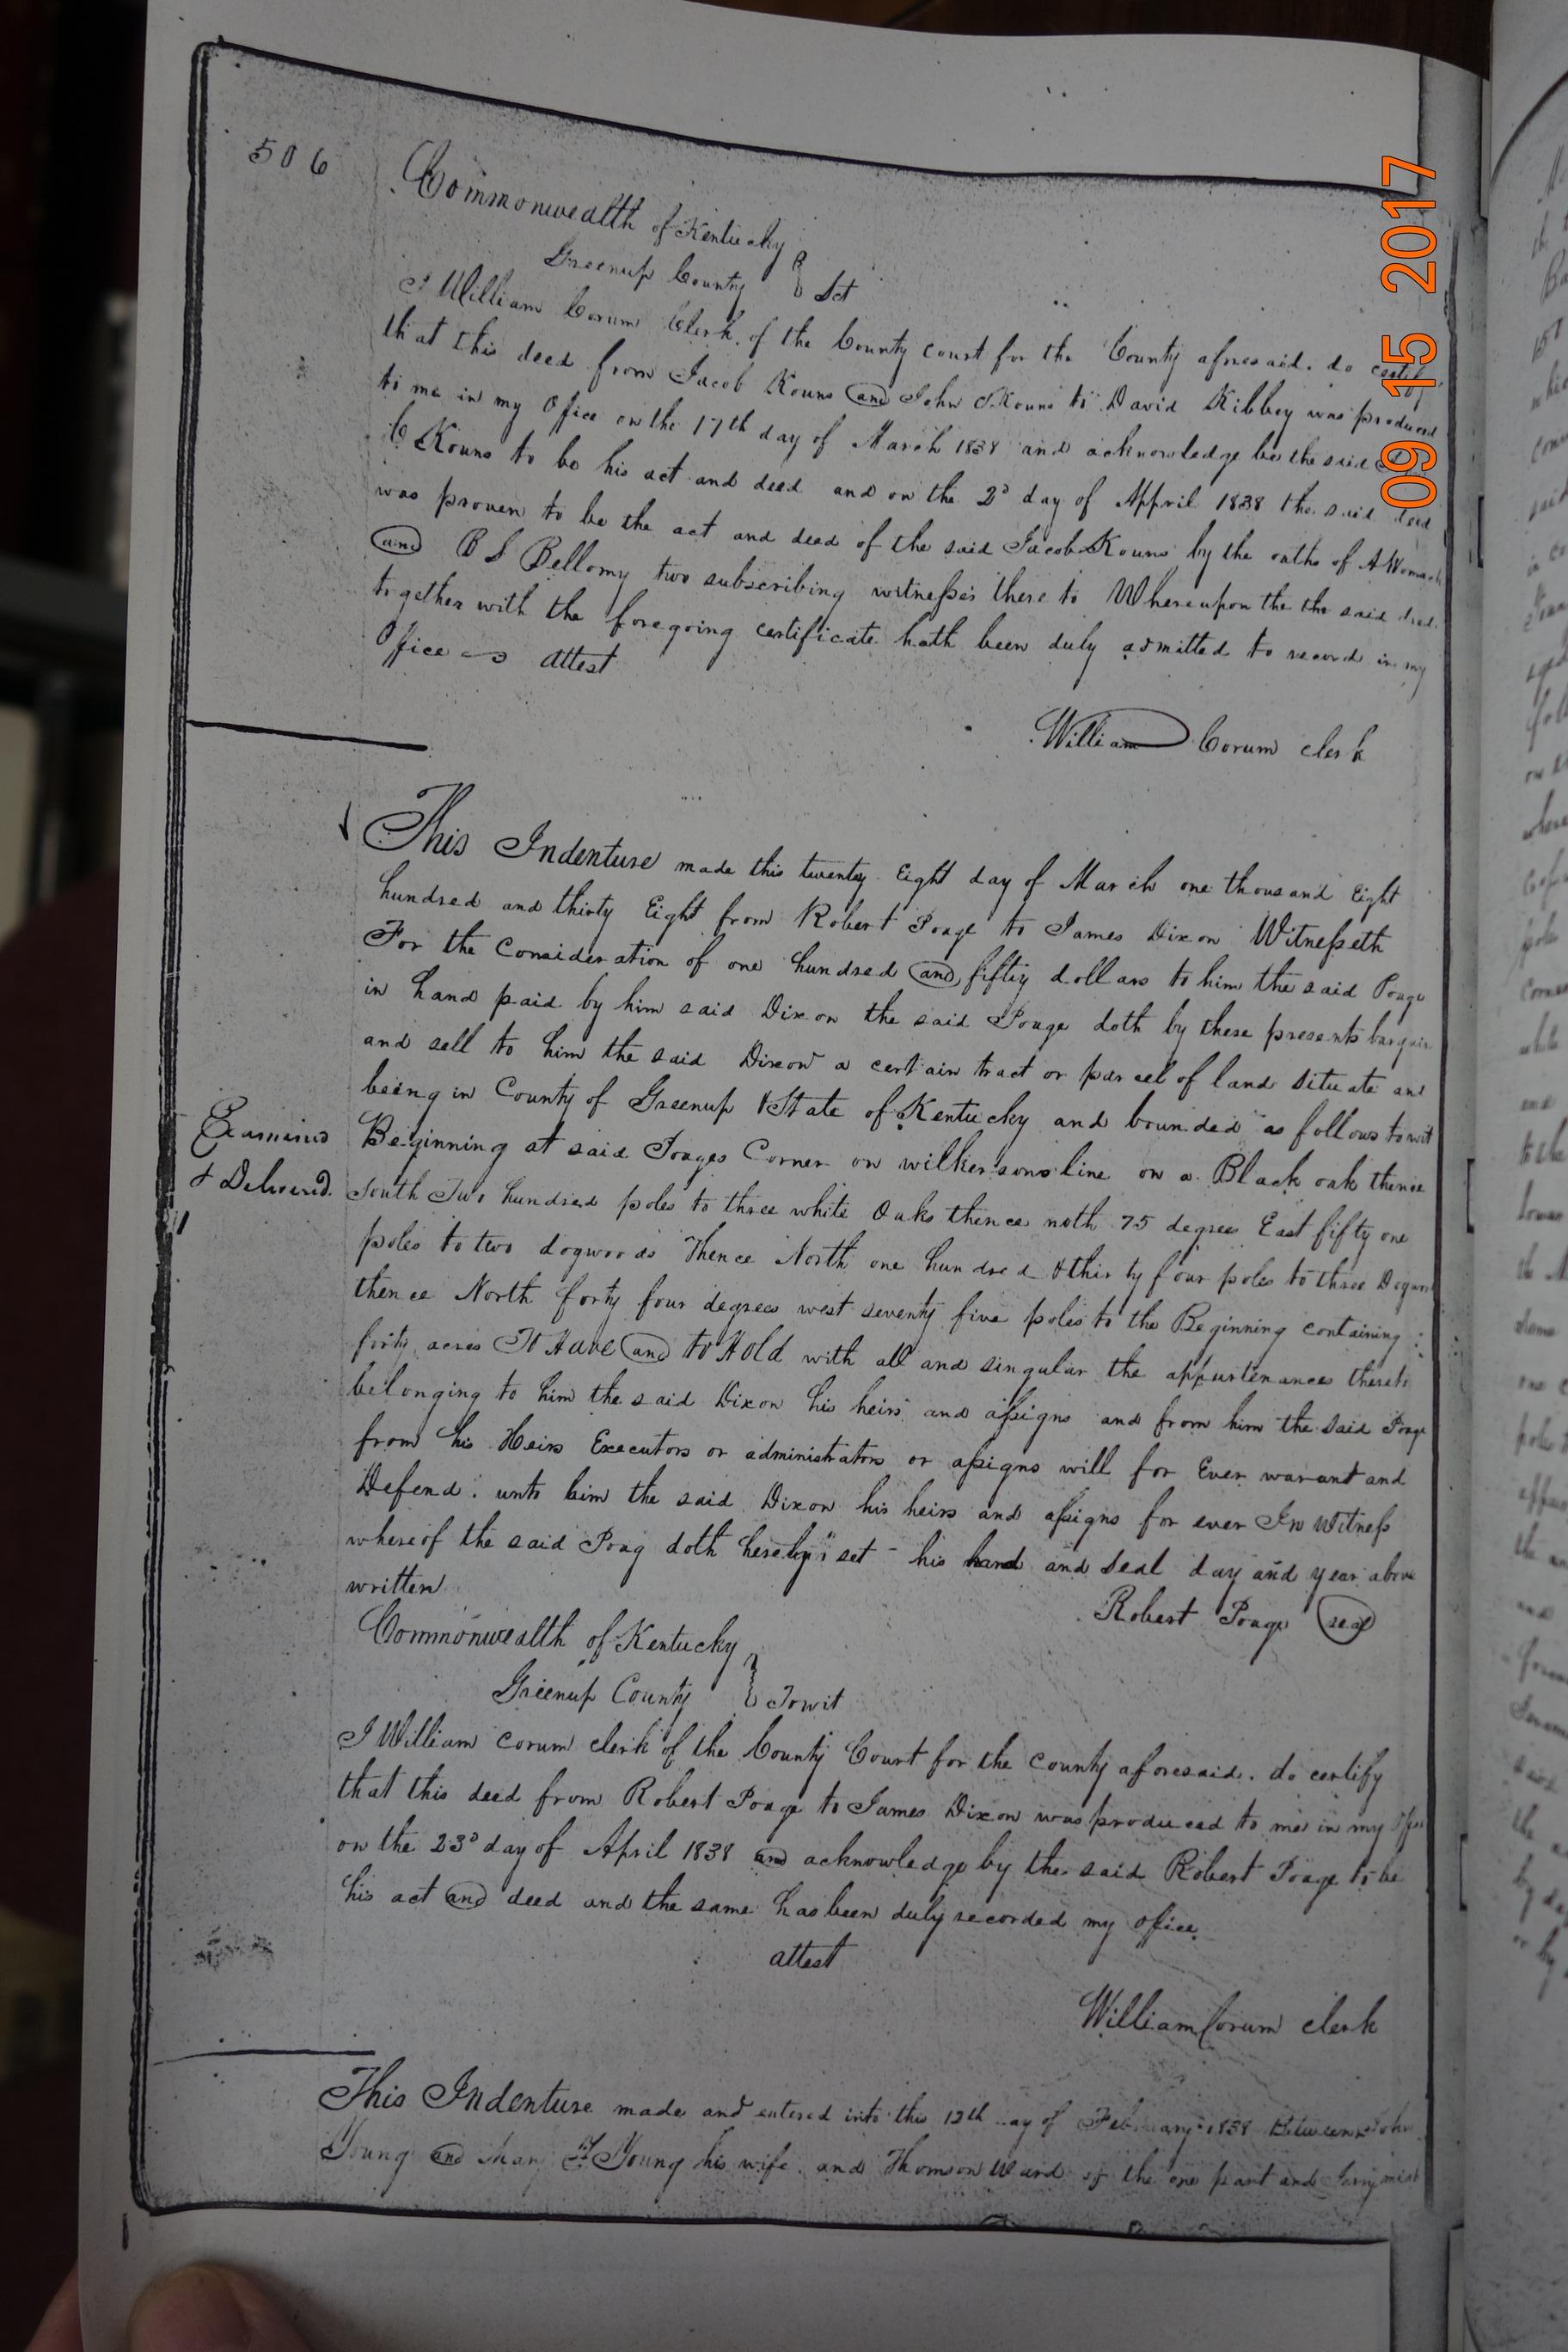 506
Commonwealth of Kentucky
Greenup County } Sct
I William Corum Clerk of the County court for the County aforesaid. do certify
that this deed from Jacob Kouns and John C Kouns to David Kibbey was produced
to me in my Office on the 17th day of March 1838 and acknowledge be the said
C Kouns to be his act and deed and on the 2d day of Appril 1838 the said deed
was proven to be the act and deed of the said Jacob Kouns by the oaths of A Womack
and B S Bellomy two subscribing witnesses there to Whereupon the the said deed
together with the foregoing certificate hath been duly admitted to record in my
Office attest
William Corum clerk
This Indenture made this twenty Eight day of March one thousand Eight
hundred and thirty Eight from Robert Poage to James Dixon Witnesseth
For the Consideration of one hundred and fiftiy dollars to him the said Poage
in hand paid by him said Dixon the said Poage doth by these presents bargain
and sell to him the said Dixon a certain tract or parcel of land situate and
being in County of Greenup & State of Kentucky and bounded as follows towit
Examined
& Delivered
Beginning at said Poages Corner on wilkersons line on a Black oak thence
South Two hundred poles to three white Oaks thence noth 75 degrees East fifty one
poles to two dogwoods Thence North one hundred & thirty four poles to three Dogwood
thence North forty four degrees west seventy five poles to the Beginning containing
forty acres To Have and to Hold with all and singular the appurtenances thereto
belonging to him the said Dixon his heirs and assigns and from him the said Poage
from his Heirs Executors or administrators or assigns will for Ever warant and
Defend. unto him the said Dixon his heirs and assigns for ever In Witness
whereof the said Poag doth hereby set his hand and seal day and year above
written
Robert Poage seal
Commonwealth of Kentucky
Greenup County } Towit
I William Corum clerk of the County Court for the County aforesaid. do certify
that this deed from Robert Poage to James Dixon was produced to me in my Office
on the 23d day of April 1838 and acknowledge by the said Robert Poage to be
his act and deed and the same has been duly recorded my office
attest
William Corum clerk
This Indenture made and entered into this 12th day of February 1838 Between John
Young and Mary Young his wife and Thomson Ward of the one part and
09 15 2017